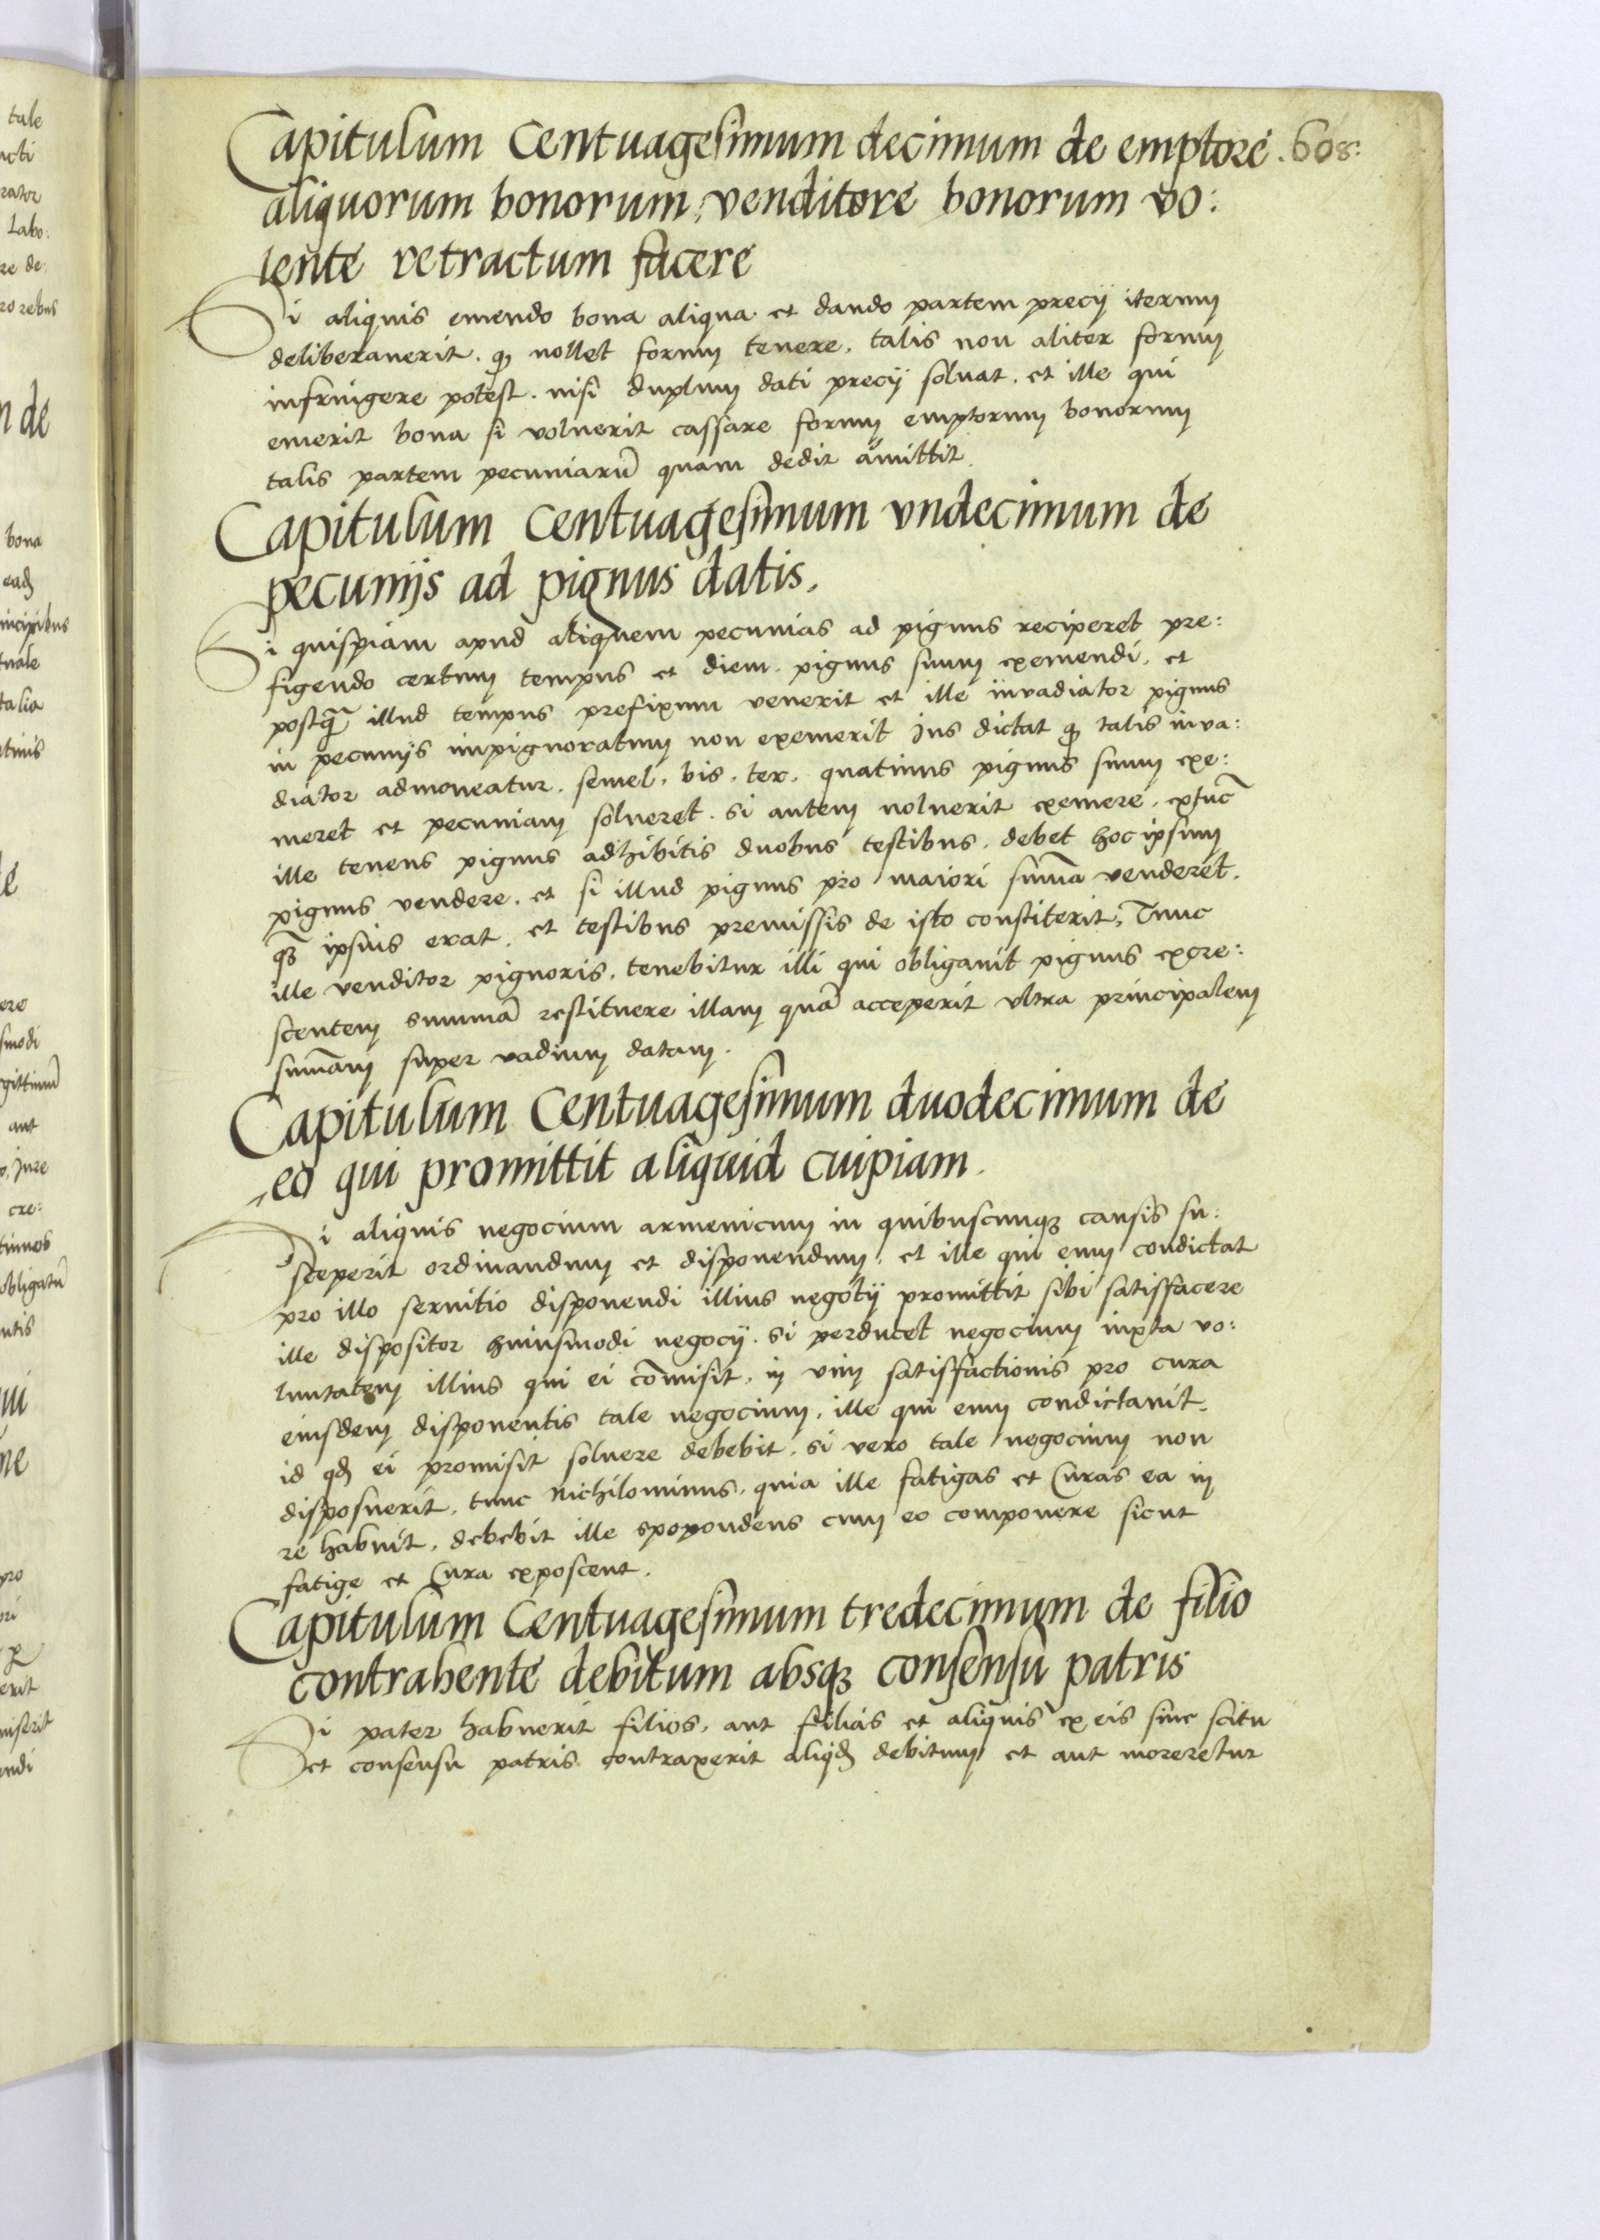 Capitulum Centuagesimum decimum de emptore .608:
aliquorum bonorum, venditore bonorum vo:
lente retractum facere
Si aliquis emendo bona aliqua et dando partem precij iterum
deliberauerit. ꝙ nollet forum tenere, talis non aliter forum
infringere potest. nisi duplum dati precij soluat. et ille qui
emerit bona si voluerit cassare forum emptorum bonorum
talis partem pecuniarū quam dedit amittit.
Capitulum Centuagesimum vndecimum de
pecunijs ad pignus datis.
Si quispiam apud aliquem pecunias ad pignus reciperet pre:
figendo certum tempus et diem. pignus suum exemendi, et
postꝙ̄ illud tempus prefixum venerit et ille inuadiator pignus
in pecunijs impignoratum non exemerit Jus dictat ꝙ talis inua:
diator admoneatur, semel, bis, ter, quatinus pignus suum exe:
meret et pecuniam solueret. si autem noluerit exemere, extūc
ille tenens pignus adhibitis duobus testibus, debet hoc ipsum
pignus vendere, et si illud pignus pro maiori sum̄a venderet,
ꝙ̄ ipsius erat, et testibus premissis de isto constiterit, Tunc
ille venditor pignoris, tenebitur illi qui obligauit pignus excre:
scentem summā restituere illam quā acceperit vltra principalem
sum̄am super vadium datam.
Capitulum Centuagesimum duodecimum de
eo qui promittit aliquid cuipiam.
Si aliquis negocium armenicum in quibuscunqꝫ causis su:
sceperit ordinandum et disponendum, et ille qui eum condictat
pro illo seruitio disponendi illius negotij promittit sibi satisfacere
ille dispositor huiusmodi negocij. si perducet negocium iuxta vo:
luntatem illius qui ei com̄isit, in vim satisfactionis pro cura
eiusdem disponentis tale negocium, ille qui eum condictauit,
id qđ ei promisit soluere debebit. si vero tale negocium non
disposuerit, tunc nichilominus, quia ille fatigas et Curas ea in
re habuit, debebit ille spopondens cum eo componere sicut
fatige et Cura exposcent.
Capitulum Centuagesimum tredecimum de filio
contrahente debitum absqꝫ consensu patris
Si pater habuerit filios, aut filias et aliquis ex eis sine scitu
et consensu patris contraxerit aliqđ debitum et aut moreretur